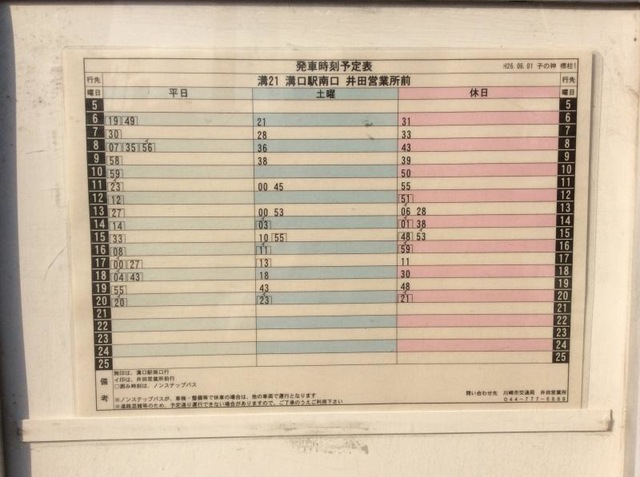 発車時刻予定表
H26.06.01 子の神 標柱1
行先 溝21 溝口駅南口 井田営業所前
曜日 平日 土曜 休日
5 5
6 19 49 21 31 6
7 30 28 33 7
8 07 35 56 36 43 8
9 58 38 39 9
10 59 50 10
11 23 00 45 55 11
12 12 51 12
13 27 00 53 06 28 13
14 14 03 01 38 14
15 33 10 55 48 53 15
16 08 11 59 16
17 00 27 13 11 17
18 04 43 18 30 18
19 55 43 48 19
20 20 23 21 20
21 21
22 22
23 23
24 24
25 25
備考
無印は、溝口駅南口行
イ印は、井田営業所前行
□囲み時刻は、ノンステップバス
※ノンステップバスが、車検・整備等で休車の場合は、他の車両で運行となります
※道路混雑等のため、予定通り運行できない場合がありますので、ご了承のうえご利用下さい
問い合わせ先 川崎市交通局 井田営業所